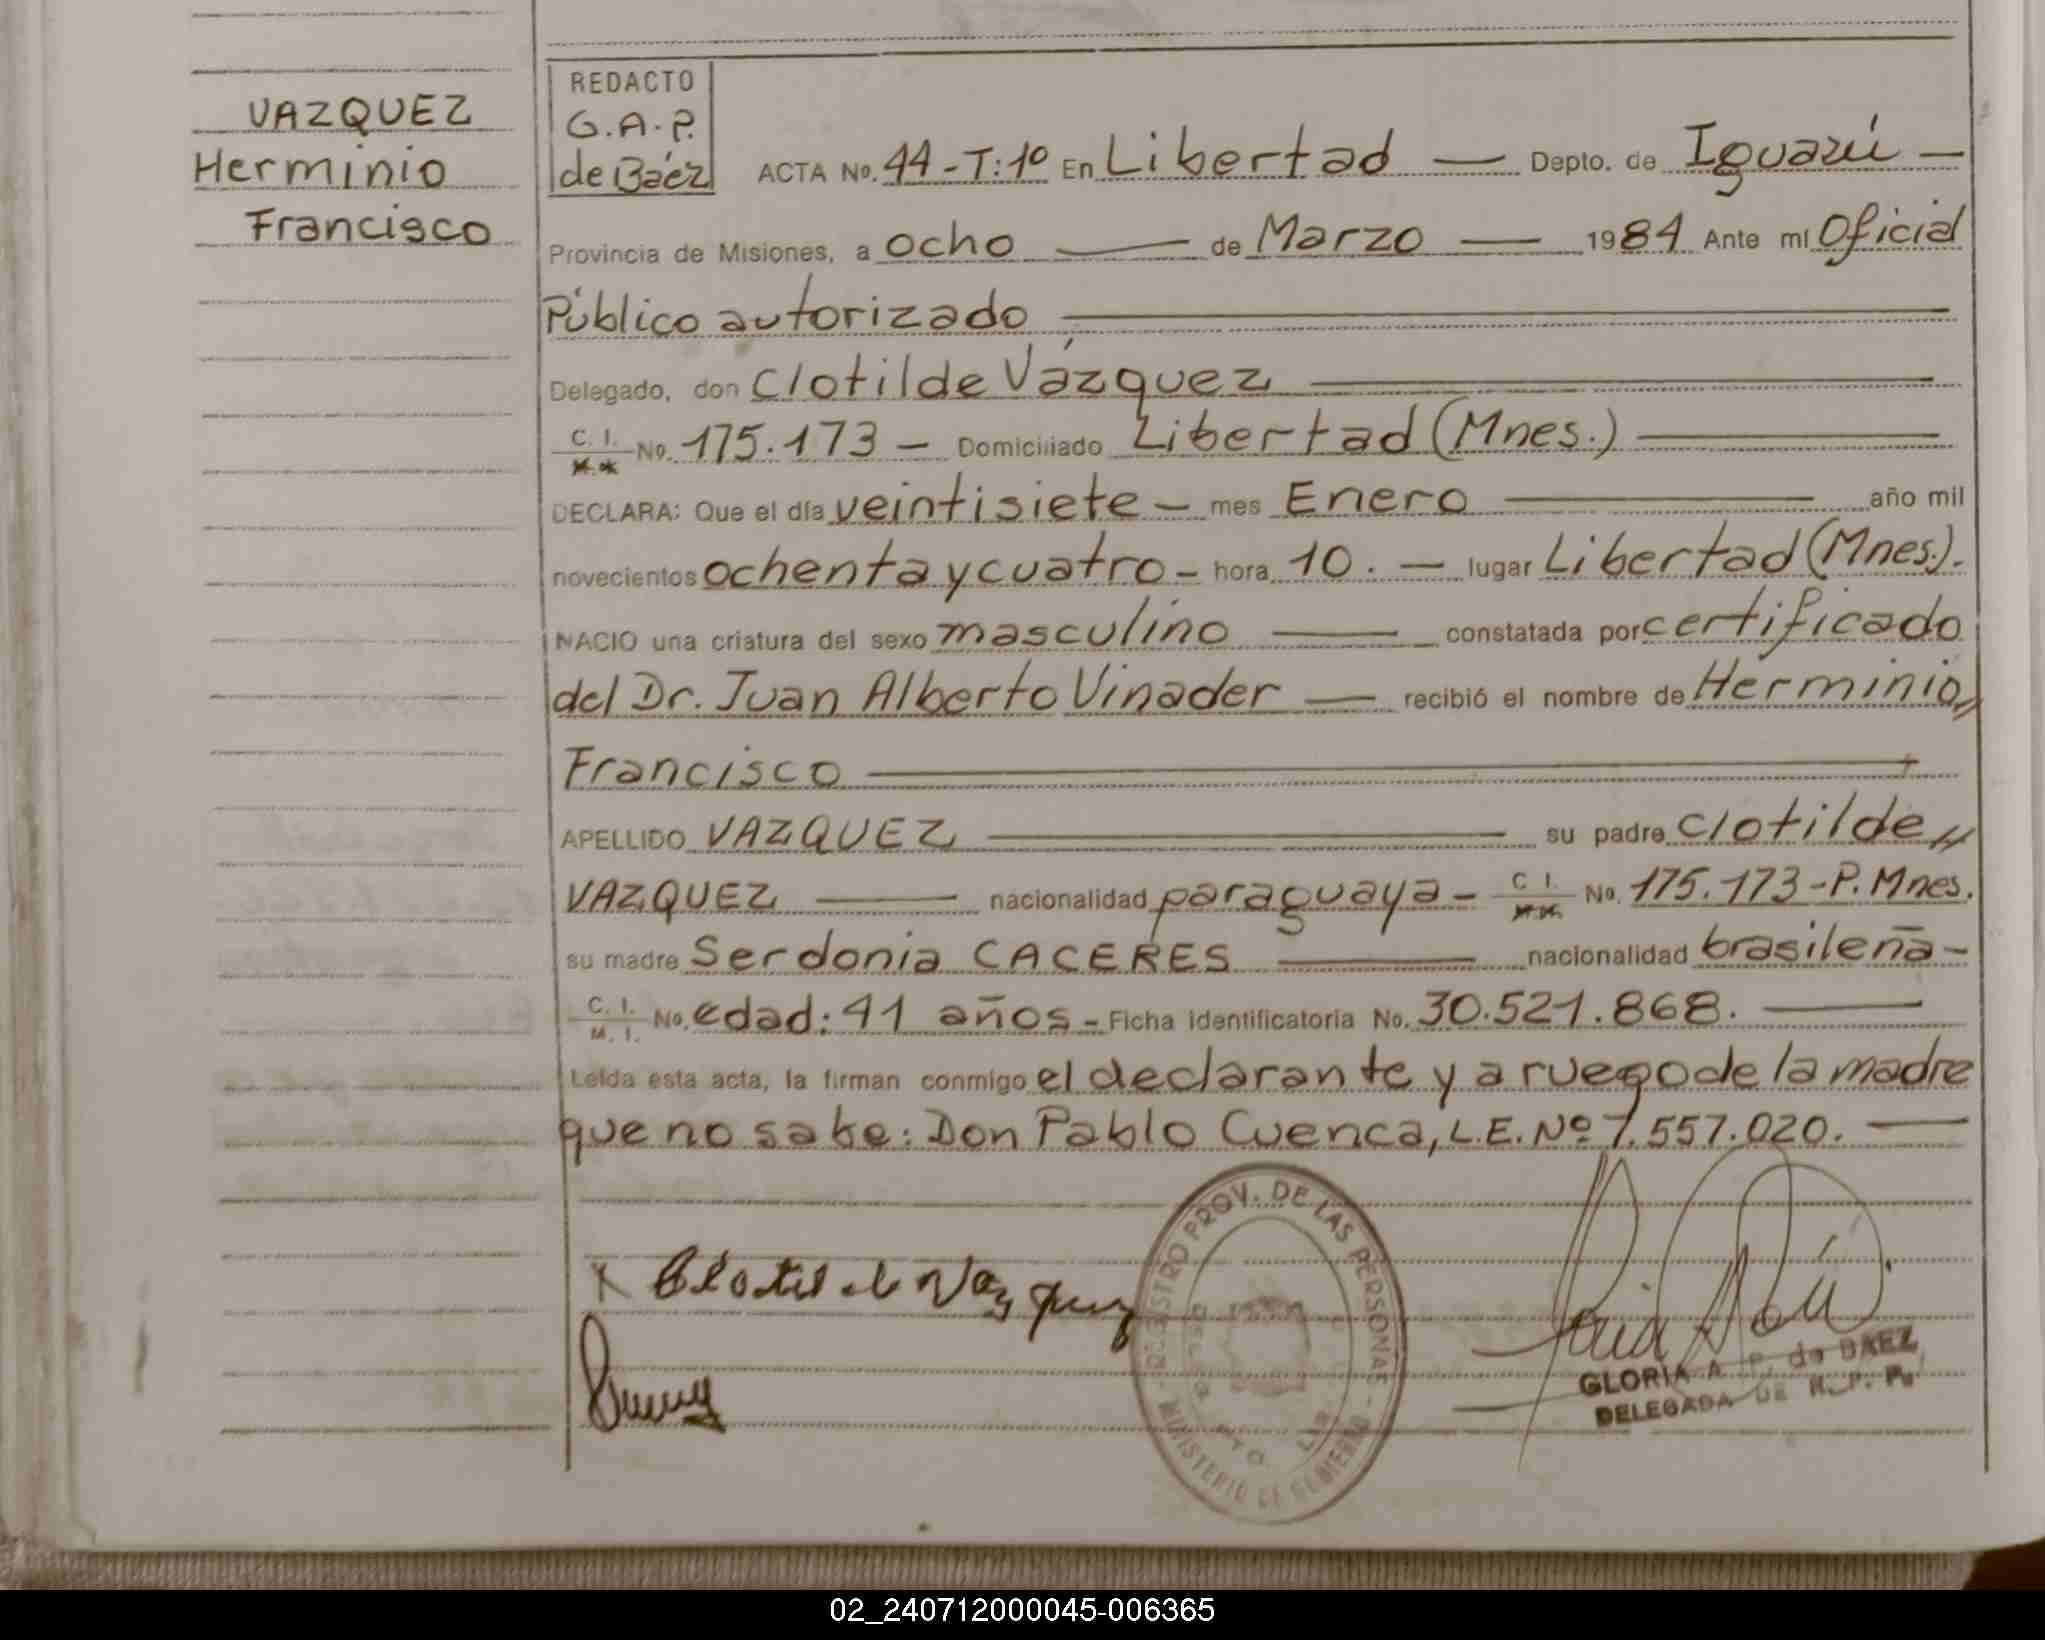 VAZQUEZ
Herminio
Francisco
REDACTO
G.A.P.
de Báez
ACTA No. 44-T:1º En Libertad — Depto. de Iguazú —
Provincia de Misiones, a ocho — de Marzo — 1984 Ante mí Oficial
Público autorizado —
Delegado, don Clotilde Vázquez —
C. I. No. 175.173 — Domiciliado Libertad (Mnes.) —
DECLARA: Que el día veintisiete — mes Enero — año mil
novecientos ochenta y cuatro - hora 10. — lugar Libertad (Mnes.).
NACIO una criatura del sexo masculino — constatada por certificado
del Dr. Juan Alberto Vinader — recibió el nombre de Herminio //
Francisco —
APELLIDO VAZQUEZ — su padre Clotilde //
VAZQUEZ — nacionalidad paraguaya - C I. No. 175.173 - P. Mnes.
su madre Serdonia CACERES — nacionalidad brasileña -
C. I. M. I. No. edad: 41 años - Ficha identificatoria No. 30.521.868. —
Leída esta acta, la firman conmigo el declarante y a ruego de la madre
que no sabe: Don Pablo Cuenca, L.E. Nº 7.557.020. —
Clotilde Vazquez
REGISTRO PROV. DE LAS PERSONAS - MINISTERIO DE GOBIERNO -
GLORIA A. P. de BAEZ
DELEGADA DE R. P. P.
02_240712000045-006365